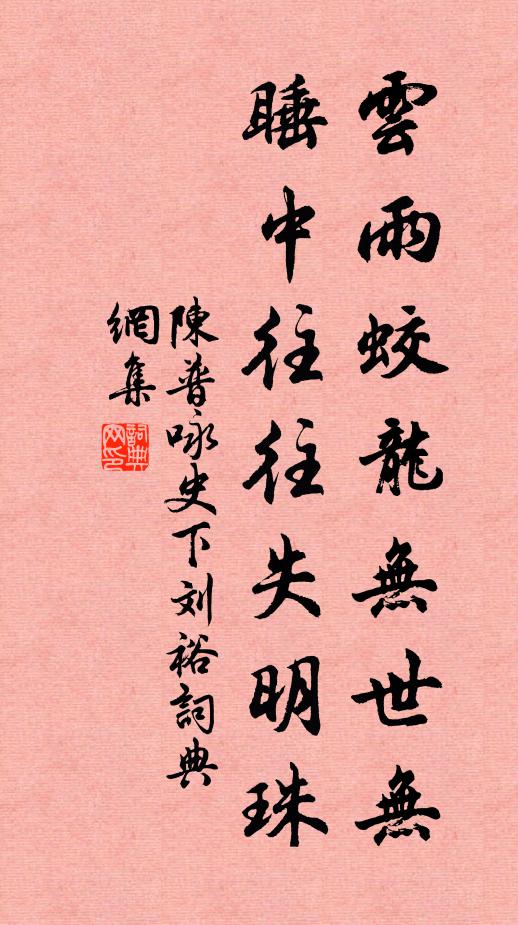 雲雨蛟龍無世無
睡中往往失明珠
陳普咏史下刘裕詞典
網集
詞典网印